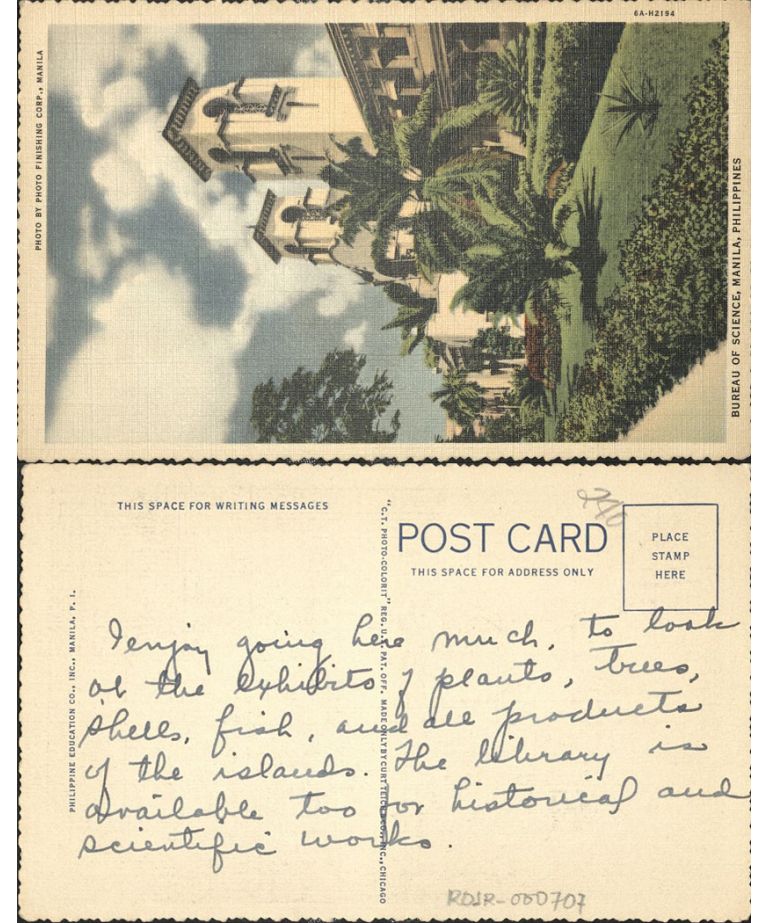 6A-H2194
PHOTO BY PHOTO FINISHING CORP., MANILA
BUREAU OF SCIENCE, MANILA, PHILIPPINES
THIS SPACE FOR WRITING MESSAGES
POST CARD
THIS SPACE FOR ADDRESS ONLY
PLACE
STAMP
HERE
240
PHILIPPINE EDUCATION CO., INC., MANILA, P. I.
"C.T. PHOTO-COLORIT" REG. U.S. PAT. OFF. MADE ONLY BY CURT TEICH & CO., INC., CHICAGO
I enjoy going here much, to look
at the exhibits of plants, trees,
shells, fish, and all products
of the islands. The library is
available too for historical and
scientific works.
RDSR-000707